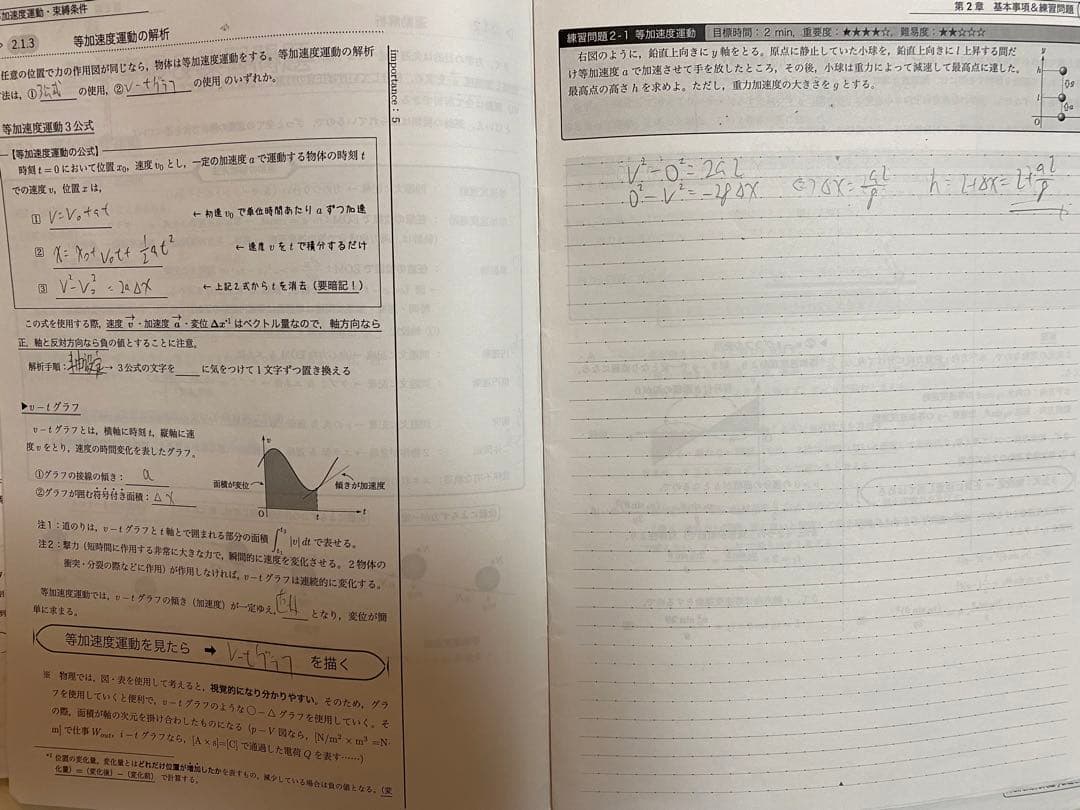 等加速度運動・束縛条件
2.1.3 等加速度運動の解析
任意の位置で力の作用図が同じなら,物体は等加速度運動をする。等加速度運動の解析
方法は,①3公式 の使用,②v-tグラフ の使用 のいずれか。
importance : 5
等加速度運動3公式
【等加速度運動の公式】
時刻 t = 0 において位置 x₀,速度 v₀ とし,一定の加速度 a で運動する物体の時刻 t
での速度 v,位置 x は,
① V=V₀+at ← 初速 v₀ で単位時間あたり a ずつ加速
② x=x₀+V₀t+½at² ← 速度 v を t で積分するだけ
③ V²-V₀²=2aΔx ← 上記2式から t を消去(要暗記!)
この式を使用する際,速度 v・加速度 a・変位 Δx*¹ はベクトル量なので,軸方向なら
正,軸と反対方向なら負の値とすることに注意。
解析手順: → 3公式の文字を に気をつけて1文字ずつ置き換える
▶v-tグラフ
v-tグラフとは,横軸に時刻 t,縦軸に速
度 v をとり,速度の時間変化を表したグラフ。
①グラフの接線の傾き: a
②グラフが囲む符号付き面積: Δx
v
面積が変位
傾きが加速度
O t t
注1:道のりは,v-tグラフと t 軸とで囲まれる部分の面積 ∫t₁t₂ |v| dt で表せる。
注2:撃力(短時間に作用する非常に大きな力で,瞬間的に速度を変化させる。2物体の
衝突・分裂の際などに作用)が作用しなければ,v-tグラフは連続的に変化する。
等加速度運動では,v-tグラフの傾き(加速度)が一定ゆえ, となり,変位が簡
単に求まる。
等加速度運動を見たら ➡ v-tグラフ を描く
※ 物理では,図・表を使用して考えると,視覚的になり分かりやすい。そのため,グラ
フを使用していくと便利で,v-tグラフのような○-△グラフを使用していく。そ
の際,面積が軸の次元を掛け合わしたものになる(p-V 図なら,[N/m² × m³ =N·
m] で仕事 Wout, i-tグラフなら,[A × s]=[C] で通過した電荷 Q を表す……)
*¹ 位置の変化量。変化量とはどれだけ位置が増加したかを表すもの。減少している場合は負の値となる。(変
化量)=(変化後)-(変化前) で計算する。
第2章 基本事項&練習問題
練習問題2-1 等加速度運動 目標時間:2 min, 重要度:★★★★☆, 難易度:★★☆☆☆
右図のように,鉛直上向きに y 軸をとる。原点に静止していた小球を,鉛直上向きに l 上昇する間だ
け等加速度 a で加速させて手を放したところ,その後,小球は重力によって減速して最高点に達した。
最高点の高さ h を求めよ。ただし,重力加速度の大きさを g とする。
y
h
g
l
a
O
V²-0²=2al
0²-V²=-2gΔx ⇔Δx=al/g h=l+Δx=l+al/g